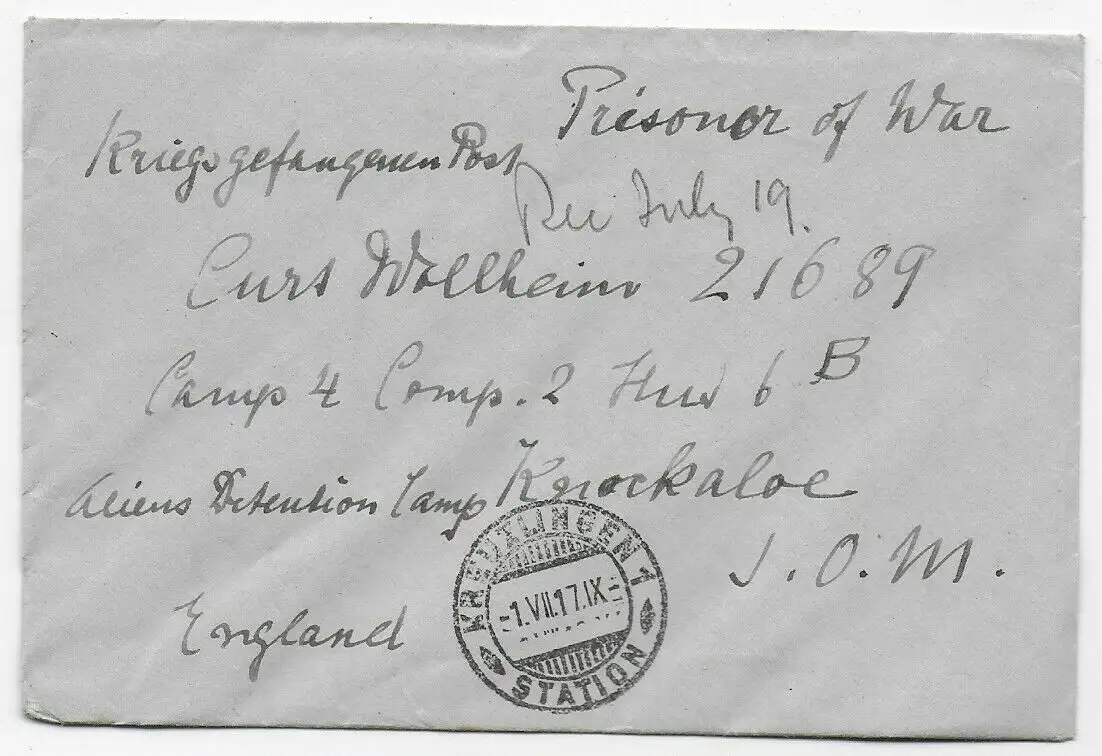 Prisoner of War
Kriegsgefangenen Post
Rec July 19.
Curt Wollheim 21689
Camp 4 Comp. 2 Hut 6 B
Aliens Detention Camp Knockaloe
I. O. M.
England
KREUZLINGEN 1
-1.VII.17.IX-
STATION